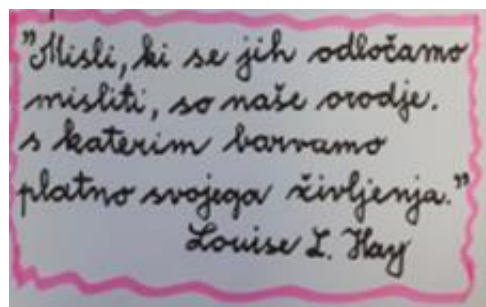 "Misli, ki se jih odločamo
misliti, so naše orodje.
s katerim barvamo
platno svojega življenja."
Louise L. Hay